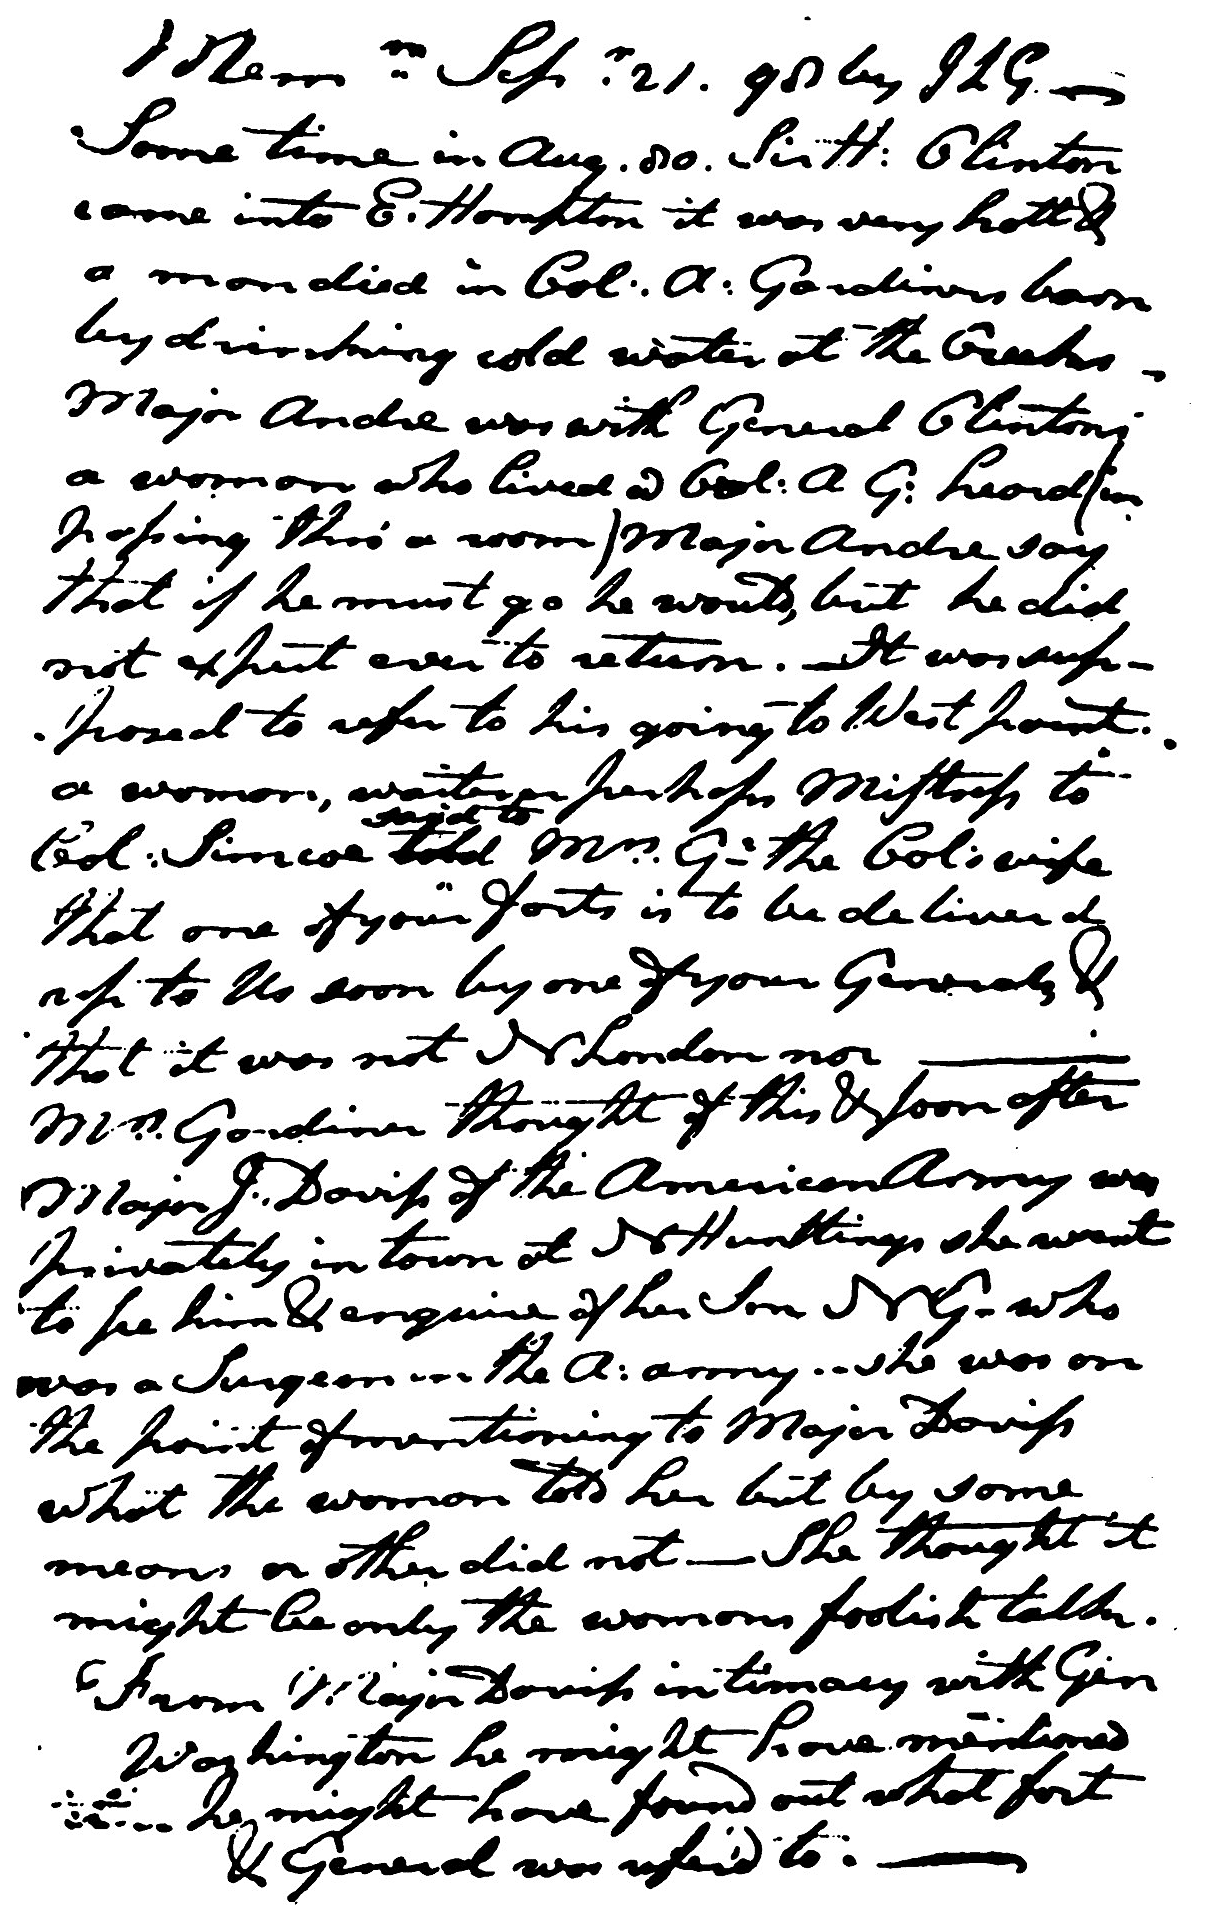 Mem.m Sepr. 21. 98 by J L G
Some time in Aug. 80. Sir H: Clinton
came into E. Hampton it was very hott &
a man died in Col. A: Gardiners barn
by drinking cold water at the Creeks
Major Andre was with General Clinton;
a woman who lived @ Col: A G: heard (in
passing thro' a room) Major Andre say
that if he must go he would, but he did
not expect ever to return. — It was sup-
posed to refer to his going to West point.
a woman, waiter or perhaps Mistress to
said to
Col: Simcoe told Mrs. G: the Col:s wife
that one of your forts is to be deliverd
up to Us soon by one of your Generals, &
that it was not N London nor ———
Mrs. Gardiner thought of this & soon after
Major J. Daviss of the American Army was
privately in town at N Huntings she went
to see him & enquire of her Son N G- who
was a Surgeon in the A: army.. she was on
the point of mentioning to Major Daviss
what the woman told her but by some
means or other did not — She thought it
might be only the womans foolish talk.
From Major Daviss intimacy with Gen
Washington he might have mentioned
he might have found out what fort
& General was referd to. ———